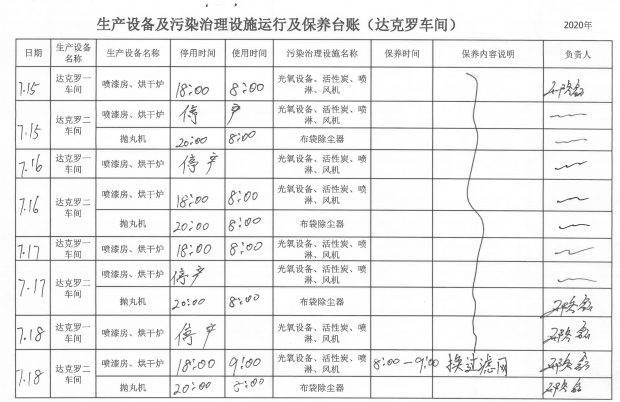 生产设备及污染治理设施运行及保养台账（达克罗车间）
2020年
日期 生产设备名称 生产设备名称 停用时间 使用时间 污染治理设施名称 保养时间 保养内容说明 负责人
7.15 达克罗一车间 喷漆房、烘干炉 18:00 8:00 光氧设备、活性炭、喷淋、风机
7.15 达克罗二车间 喷漆房、烘干炉 停产 光氧设备、活性炭、喷淋、风机
抛丸机 20:00 8:00 布袋除尘器
7.16 达克罗一车间 喷漆房、烘干炉 停产 光氧设备、活性炭、喷淋、风机
7.16 达克罗二车间 喷漆房、烘干炉 18:00 8:00 光氧设备、活性炭、喷淋、风机
抛丸机 20:00 8:00 布袋除尘器
7.17 达克罗一车间 喷漆房、烘干炉 18:00 8:00 光氧设备、活性炭、喷淋、风机
7.17 达克罗二车间 喷漆房、烘干炉 停产 光氧设备、活性炭、喷淋、风机
抛丸机 20:00 8:00 布袋除尘器
7.18 达克罗一车间 喷漆房、烘干炉 停产 光氧设备、活性炭、喷淋、风机
7.18 达克罗二车间 喷漆房、烘干炉 18:00 9:00 光氧设备、活性炭、喷淋、风机 8:00-9:00 换过滤网
抛丸机 20:00 8:00 布袋除尘器